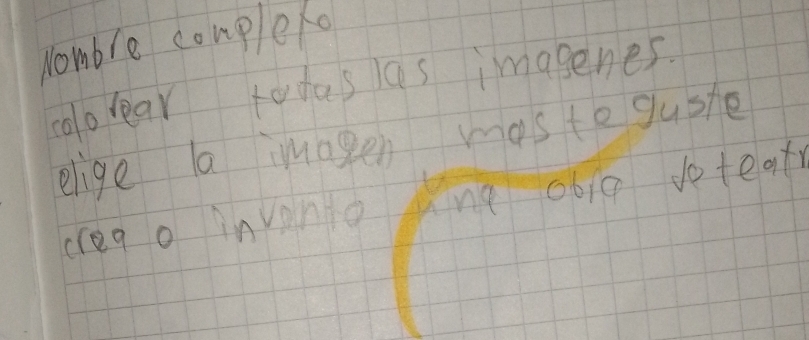 Nombre completo
colorear totas las imagenes.
elige la imagen mas te guste
crea o invento una obra de teatr